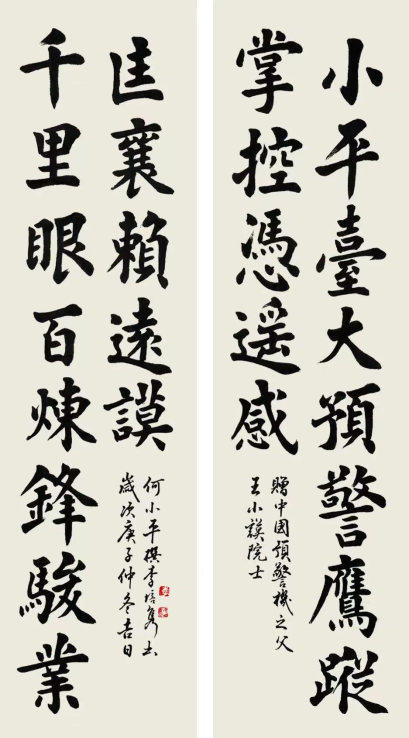 小平臺大預警鷹蹤
掌控憑遥感
贈中國預警機之父
王小謨院士
千里眼百煉鋒駿業
匡襄賴遠謨
何小平撰李培隽书
歲次庚子仲冬吉日